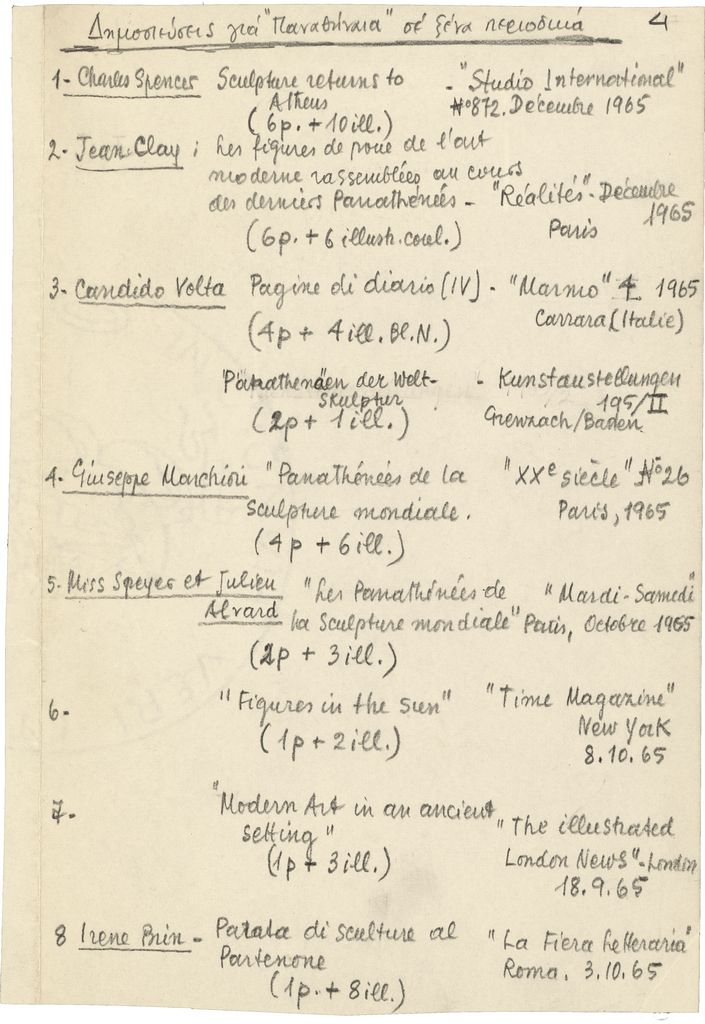 Δημοσιεύσεις γιά "Παναθήναια" σέ ξένα περιοδικά 4
1- Charles Spencer Sculpture returns to Athens - "Studio International"
(6p. + 10ill.) No 872. Décembre 1965
2- Jean Clay : Les figures de proue de l'art
moderne rassemblées au cours
des derniers Panathénées - "Réalités" - Décembre 1965
(6p. + 6 illustr. coul.) Paris
3- Candido Volta Pagine di diario (IV) - "Marmo" 4 1965
(4p + 4ill. Bl.N.) Carrara (Italie)
"Panathenäen der Welt- - Kunstaustellungen
Skulptur 195/II
(2p + 1ill.) Grenzach/Baden
4- Giuseppe Marchiori "Panathénées de la "XXe siècle" No 26
Sculpture mondiale. Paris, 1965
(4p + 6ill.)
5- Miss Speyer et Julien "Les Panathénées de "Mardi-Samedi"
Alvard la Sculpture mondiale" Paris, Octobre 1965
(2p + 3ill.)
6- "Figures in the sun" "Time Magazine"
(1p + 2ill.) New York
8.10.65
7- "Modern Art in an ancient
setting" "The illustrated
(1p + 3ill.) London News" - London
18.9.65
8 Irene Brin - Parata di sculture al "La Fiera Letteraria"
Partenone Roma. 3.10.65
(1p. + 8ill.)